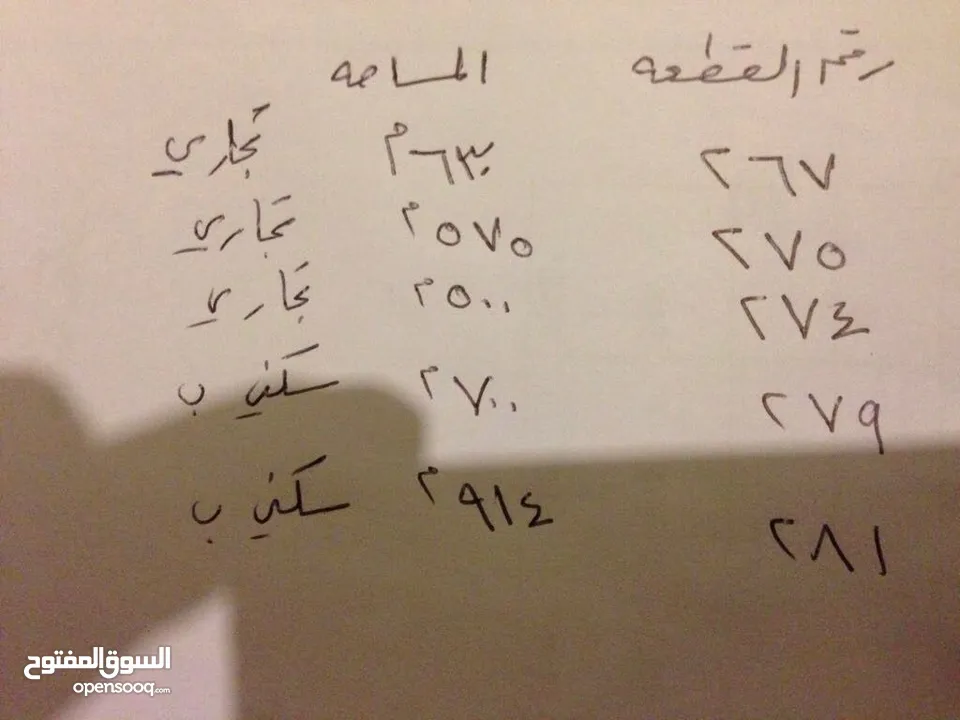 رقم القطعه المساحه
٢٦٧ ٦٣٠م تجاري
٢٧٥ ٥٧٥م تجاري
٢٧٤ ٥٠٠م تجاري
٢٧٩ ٧٠٠م سكني ب
٢٨١ ٩١٤م سكني ب
السوق المفتوح
opensooq.com